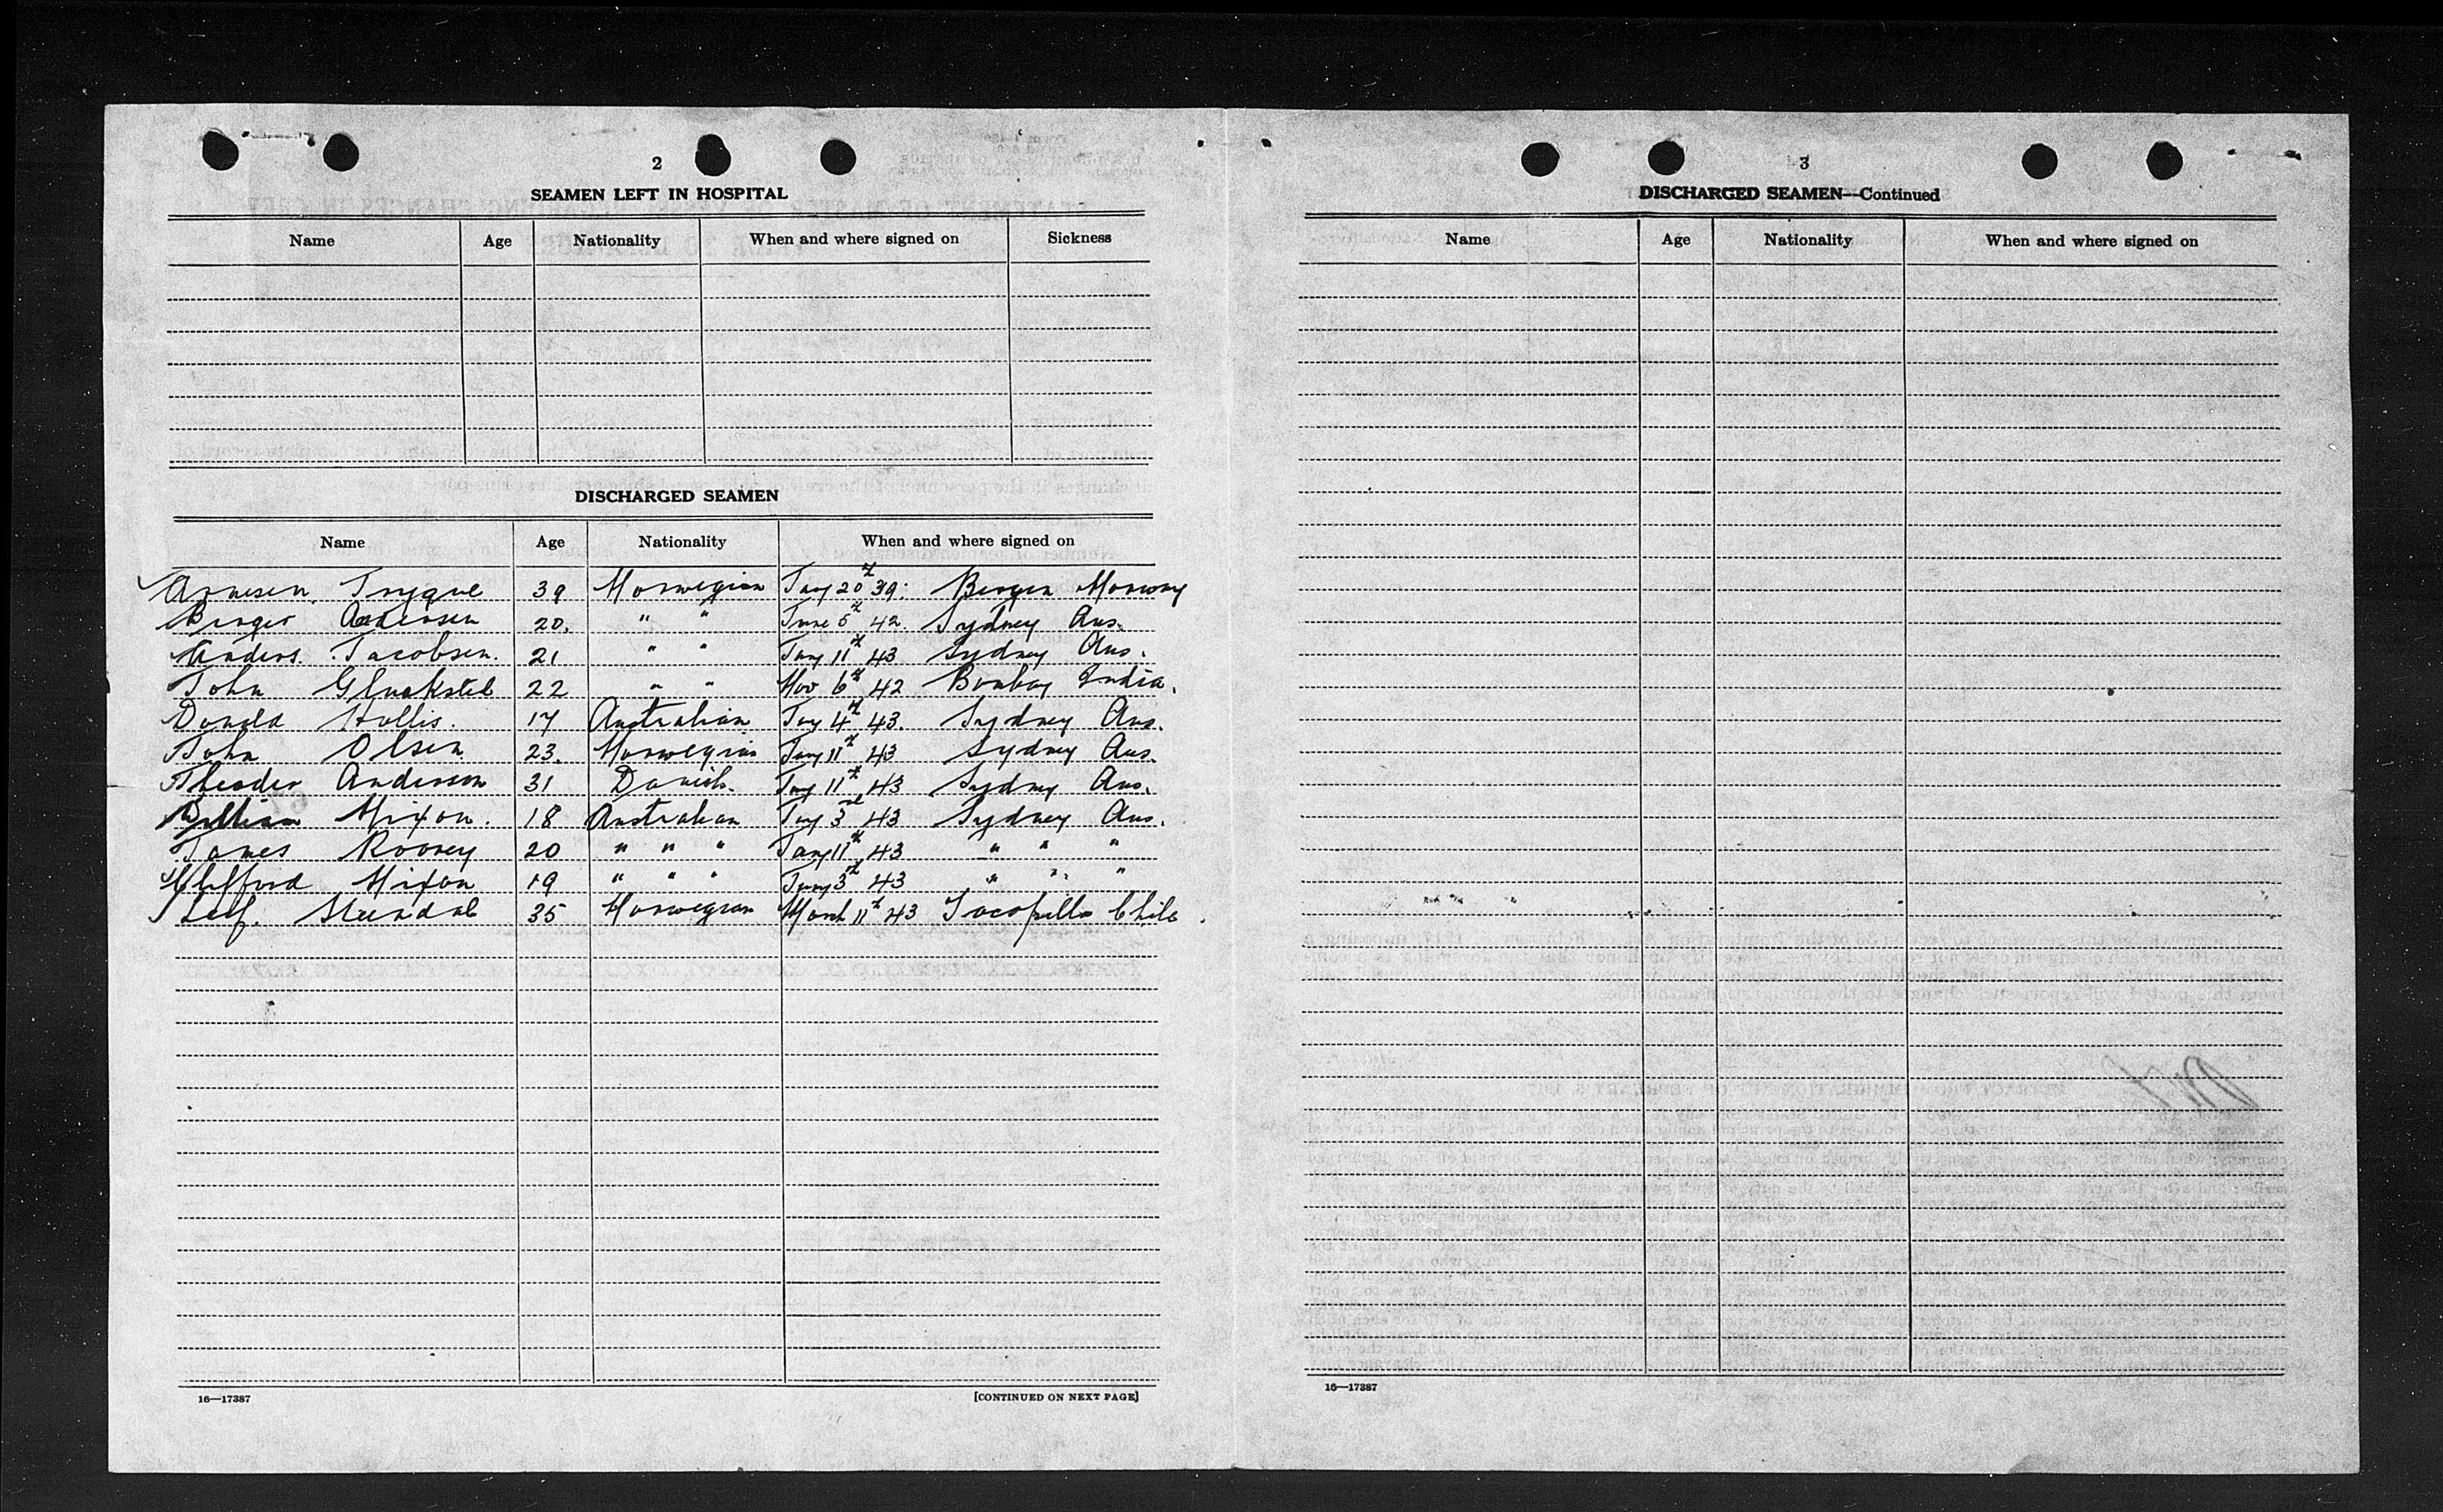 2
SEAMEN LEFT IN HOSPITAL
Name Age Nationality When and where signed on Sickness
DISCHARGED SEAMEN
Name Age Nationality When and where signed on
Arnesen Trygve 39 Norwegian Jany 20th 39: Bergen Norway
Birger Andersen 20. " " June 5th 42. Sydney Aus.
Anders Jacobsen. 21 " " Jany 11th 43 Sydney Aus.
John 22 " " Nov 6th 42 Bombay India.
Donald Hollis. 17 Australian Jany 4th 43. Sydney Aus.
John Olsen 23. Norwegian Jany 11th 43 Sydney Aus.
Theodor Anderson 31 Danish. Jany 11th 43 Sydney Aus.
William Nixon. 18 Australian Jany 3rd 43 Sydney Aus.
James Rooney 20 " " " Jany 11th 43 " " "
Clifford Nixon 19 " " " Jany 3rd 43 " " "
Leif. 35 Norwegian March 11th 43 Tocopilla Chile.
16—17387 [CONTINUED ON NEXT PAGE]
3
DISCHARGED SEAMEN—Continued
Name Age Nationality When and where signed on
16—17387